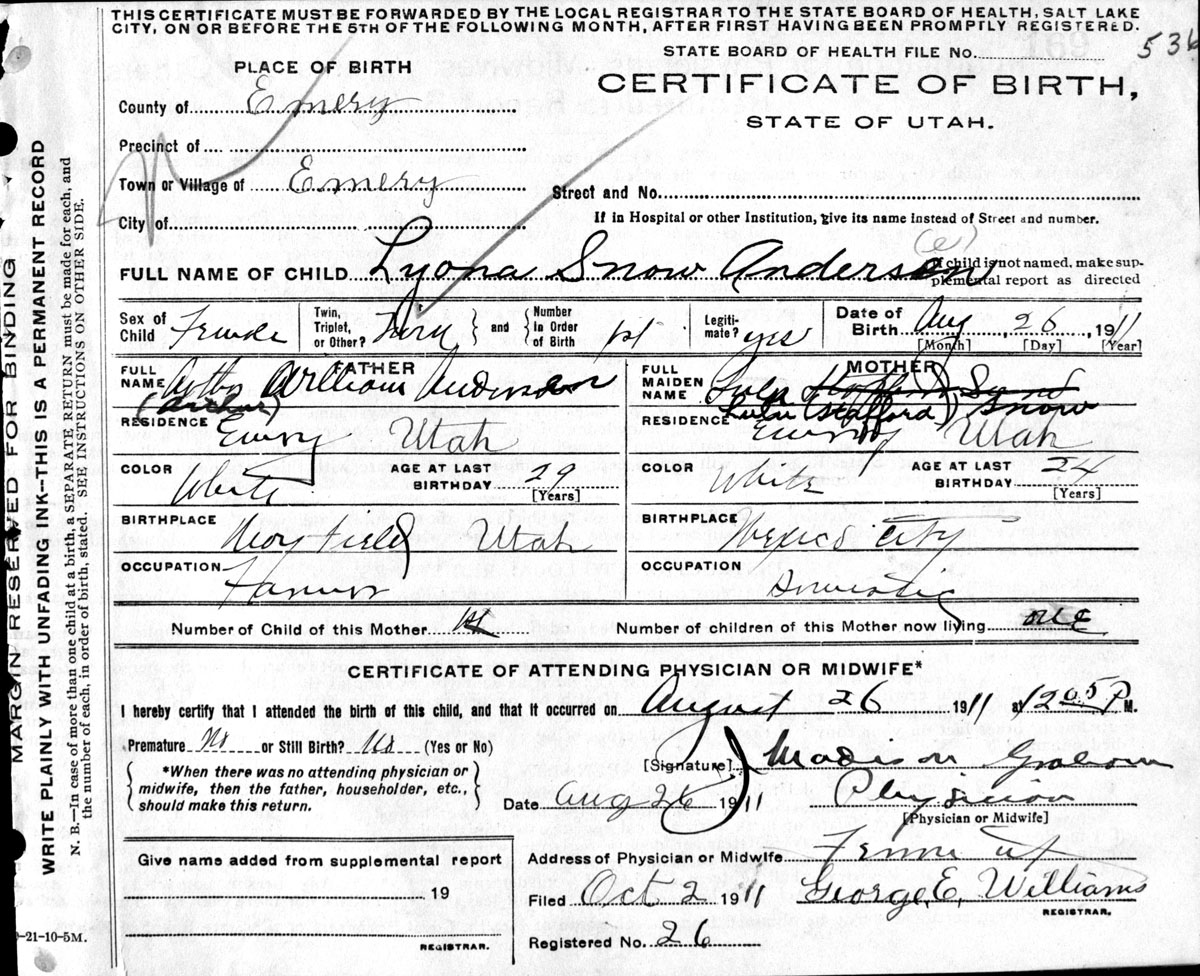 THIS CERTIFICATE MUST BE FORWARDED BY THE LOCAL REGISTRAR TO THE STATE BOARD OF HEALTH, SALT LAKE
CITY, ON OR BEFORE THE 5TH OF THE FOLLOWING MONTH, AFTER FIRST HAVING BEEN PROMPTLY REGISTERED.
STATE BOARD OF HEALTH FILE No. 536
PLACE OF BIRTH
CERTIFICATE OF BIRTH,
STATE OF UTAH.
County of Emery
Precinct of
Town or Village of Emery
Street and No.
City of
If in Hospital or other Institution, give its name instead of Street and number.
(e)
FULL NAME OF CHILD Lyona Snow Anderson
If child is not named, make sup-
plemental report as directed
Sex of Child Female
Twin, Triplet, or Other?
and Number in Order of Birth 1st
Legiti-mate? yes
Date of Birth Aug 26 1911
[Month] [Day] [Year]
FATHER
FULL NAME William Anderson
(Arthur)
RESIDENCE Emery Utah
COLOR White
AGE AT LAST BIRTHDAY 29
[Years]
BIRTHPLACE Utah
OCCUPATION Farmer
MOTHER
FULL MAIDEN NAME Lula
Lulu (Stafford) Snow
RESIDENCE Emery Utah
COLOR White
AGE AT LAST BIRTHDAY 24
[Years]
BIRTHPLACE Mexico City
OCCUPATION Domestic
Number of Child of this Mother 1st
Number of children of this Mother now living one
CERTIFICATE OF ATTENDING PHYSICIAN OR MIDWIFE*
I hereby certify that I attended the birth of this child, and that it occurred on August 26 1911 at 12 05 P M.
Premature No or Still Birth? No (Yes or No)
*When there was no attending physician or
midwife, then the father, householder, etc.,
should make this return.
[Signature] J Madison Graham
Date Aug 26 1911 Physician
[Physician or Midwife]
Give name added from supplemental report
19
REGISTRAR.
Address of Physician or Midwife
Filed Oct 2 1911 George E. Williams
REGISTRAR.
Registered No. 26
-21-10-5M.
MARGIN RESERVED FOR BINDING
WRITE PLAINLY WITH UNFADING INK—THIS IS A PERMANENT RECORD
N. B.—In case of more than one child at a birth a SEPARATE RETURN must be made for each, and
the number of each, in order of birth, stated. SEE INSTRUCTIONS ON OTHER SIDE.